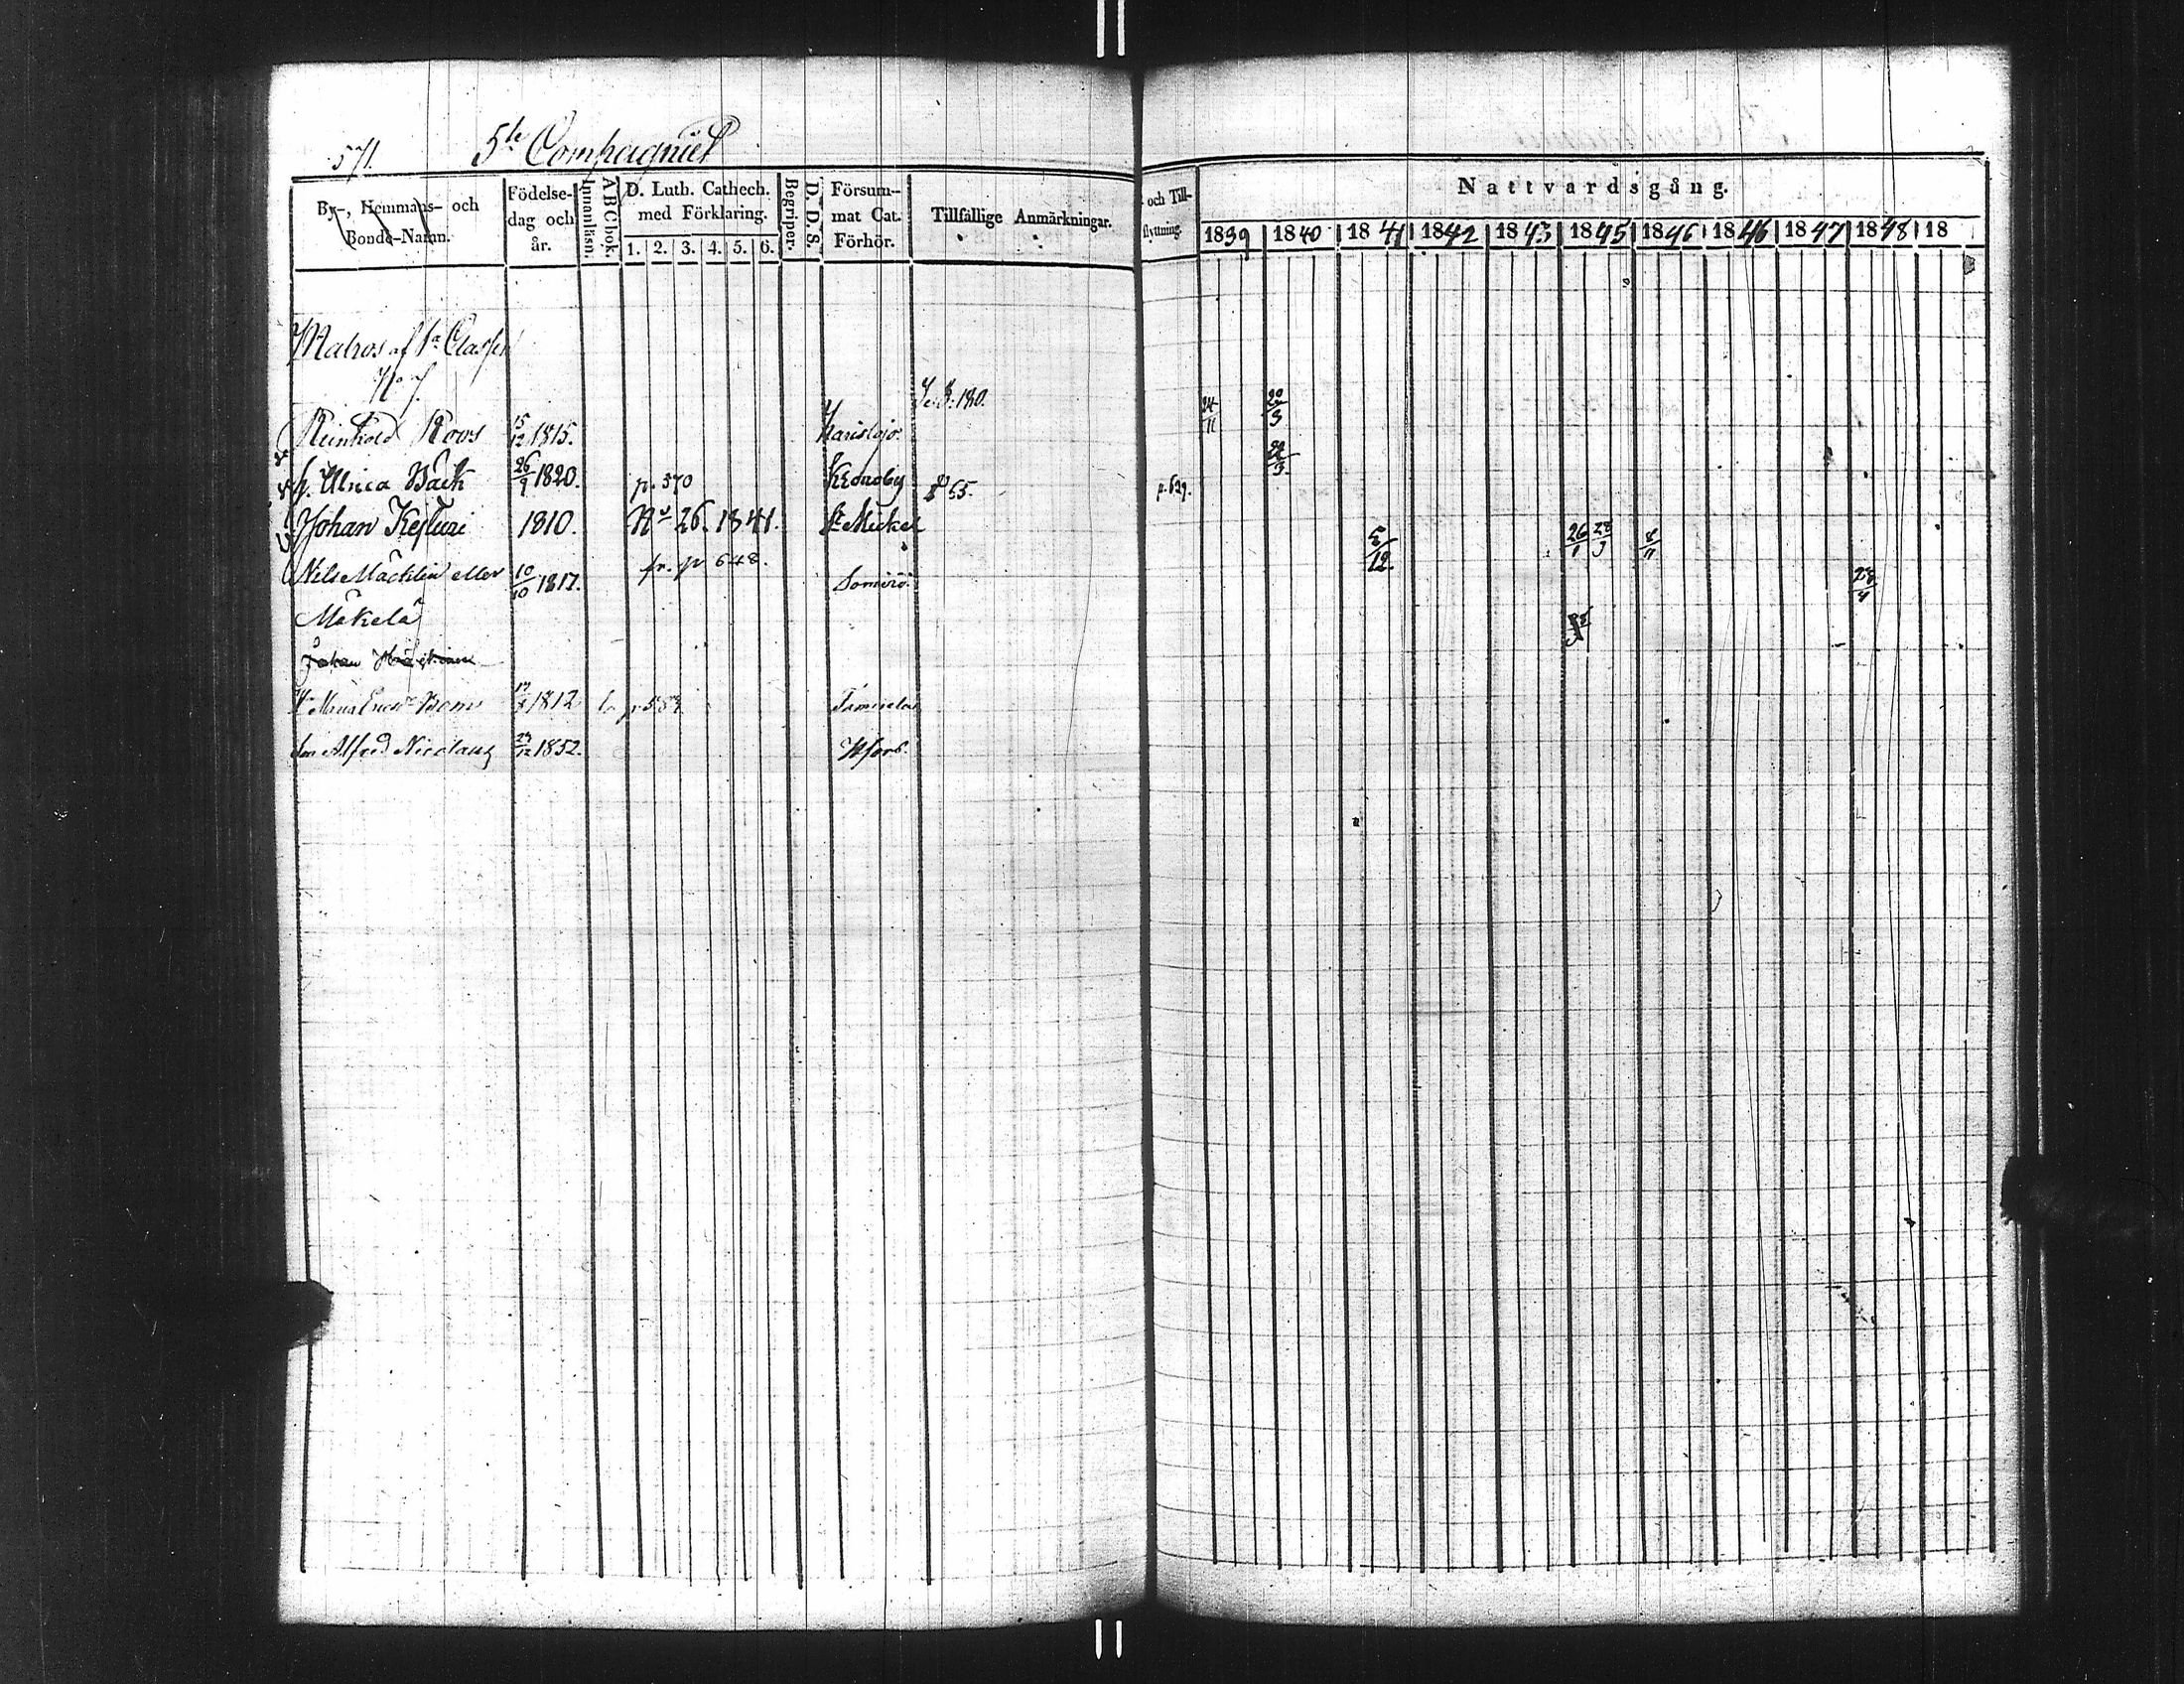 571. 5te Compagniet
By-, Hemmans- och Bonde-Namn.
Födelse-dag och år.
Innanläsn.
ABCbok.
D. Luth. Cathech. med Förklaring.
1. 2. 3. 4. 5. 6.
Begriper.
D. D. S.
Försum-mat Cat. Förhör.
Tillfällige Anmärkningar.
och Till-
flyttning.
Nattvardsgång.
1839 1840 1841 1842 1843 1845 1846 1846 1847 1848 18
Matros af 1a Classen
No 7.
180.
Reinhold Roos 15/12 1815. Karislojo. 24/11
h. Ulrica Bäck 26/9 1820. p. 570 55. p. 629.
Johan 1810. No 26. 1841. St Mickel 5/12 26/1 8/11
Nils Mäcklin eller 10/10 1817. fr. p 648. Somerö. 28/4
Mäkelä
Johan
1812
Son Alfred Nicolaus 29/12 1852. Hfors.